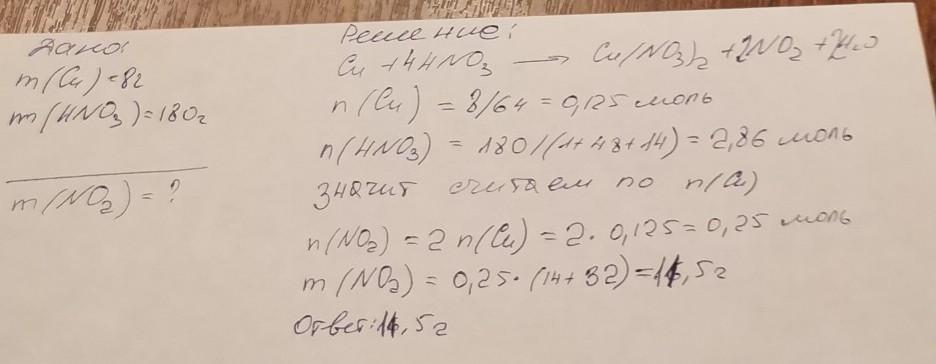 Дано:
m(Cu)=8г
m(HNO3)=180г
m(NO2)=?
Решение:
Cu+4HNO3 → Cu(NO3)2+2NO2+2H2O
n(Cu)=8/64=0,125 моль
n(HNO3)=180/(1+48+14)=2,86 моль
значит считаем по n(Cu)
n(NO2)=2n(Cu)=2·0,125=0,25 моль
m(NO2)=0,25·(14+32)=11,5г
Ответ:11,5г